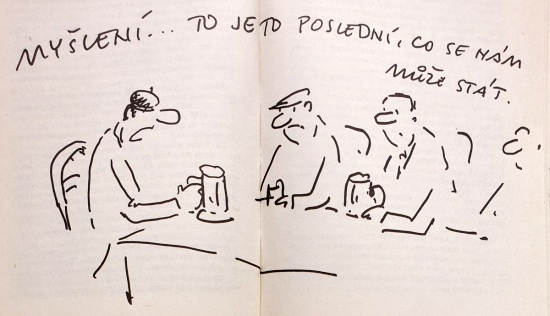 MYŠLENÍ... TO JE TO POSLEDNÍ, CO SE NÁM
MŮŽE STÁT.